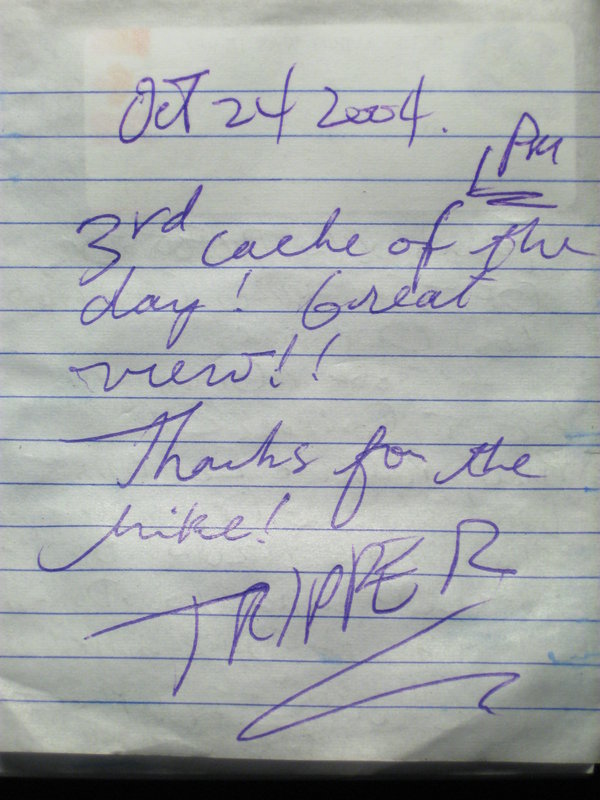 Oct 24 2004.
1 PM
3rd cache of the
day! Great
view!!
Thanks for the
hike!
TRIPPER